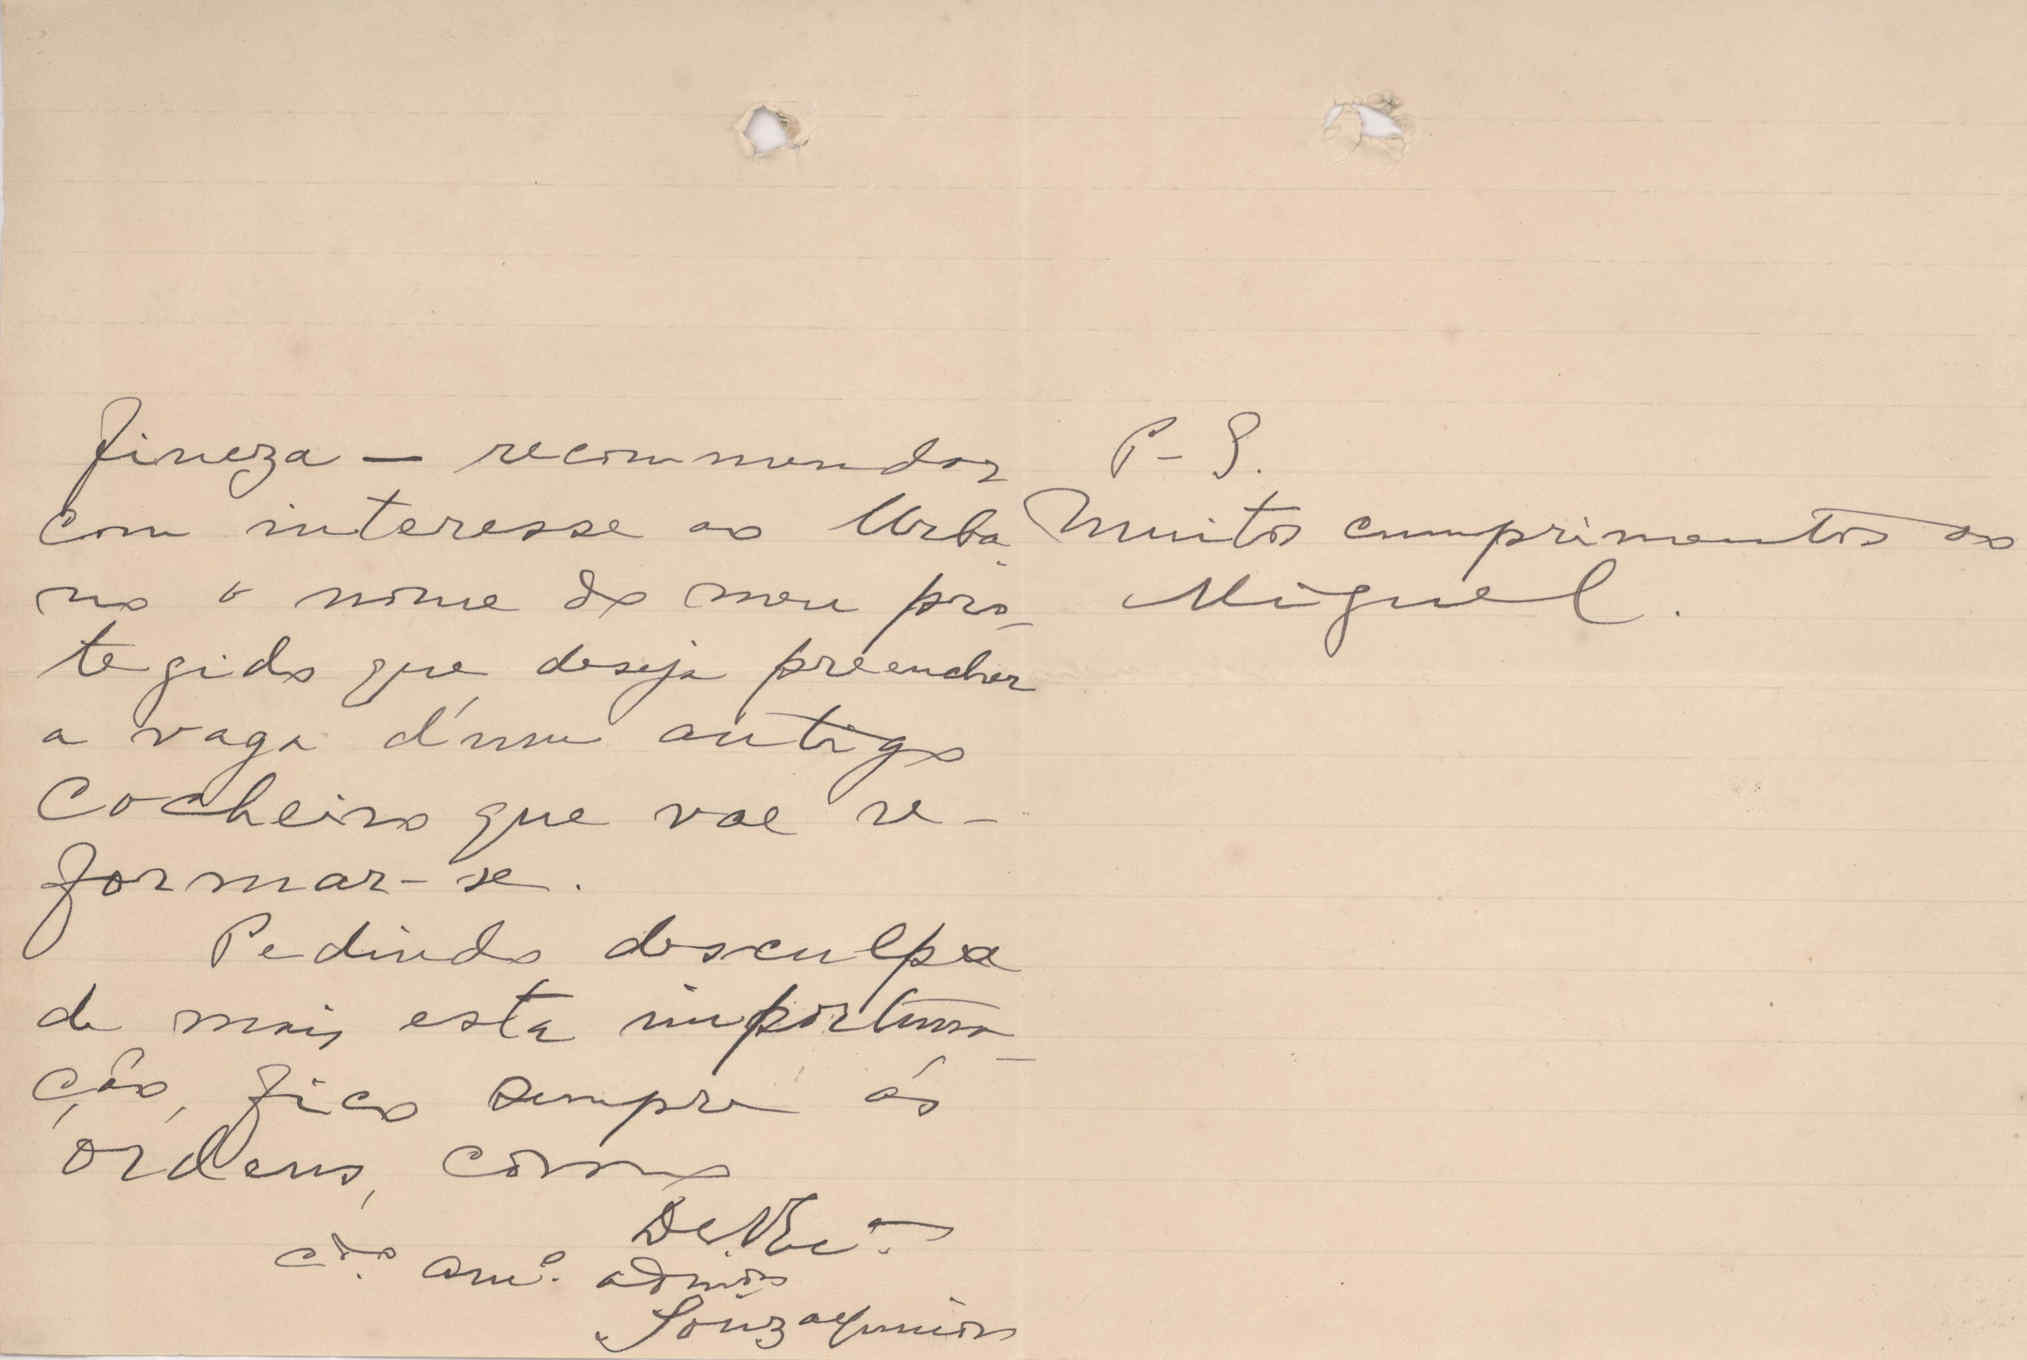 fineza — recommendar
com interesse ao Urba
no o nome do meu pro-
tegido que deseja preencher
a vaga d'um antigo
cocheiro que vae re-
formar-se.
Pedindo desculpa
de mais esta importuna-
ção, fico sempre ás
ordens, como
De V. Ex.ª
cr.º am.º admor
Souza Junior
P-S.
Muitos cumprimentos ao
Miguel.